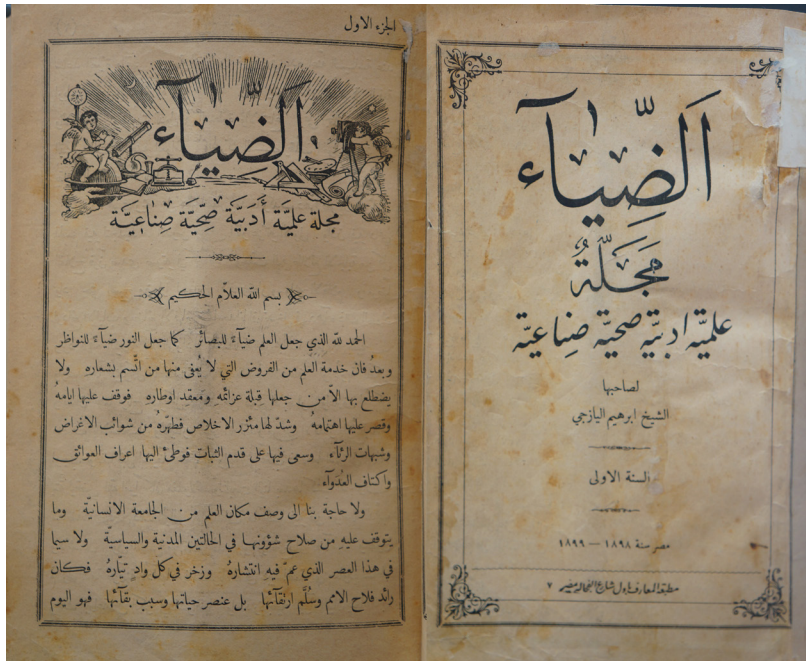 اَلضِّيآء
مَجَلَّةٌ
علميَّة ادبيَّة صحيَّة صِناعيَّة
لصاحبها
الشيخ ابرهيم اليازجي
السنة الاولى
مصر سنة ١٨٩٨ — ١٨٩٩
مطبعة المعارف باول شارع الفجالة بمصر
الجزء الاول
اَلضِّيآء
مجلة علميَّة أَدَبيَّة صِحِّيَّة صِناعيَّة
بسم الله العلاّم الحكيم
الحمد لله الذي جعل العلم ضيآءً للبصائر كما جعل النور ضيآءً للنواظر
وبعدُ فان خدمة العلم من الفروض التي لا يُعفى منها من اتَّسم بشعاره ولا
يضطلع بها الاّ من جعلها قِبلة عزائمهِ ومَعقد اوطاره فوقف عليها ايامهُ
وقصر عليها اهتمامهُ وشدّ لها مئزر الاخلاص فطهَّرهُ من شوائب الاغراض
وشبهات الرئآء وسعى فيها على قدم الثبات فوطئ اليها اعراف العوائق
واكتاف العُدَوآء
ولا حاجة بنا الى وصف مكان العلم من الجامعة الانسانيّة وما
يتوقف عليهِ من صلاح شؤونها في الحالتين المدنية والسياسيّة ولا سيما
في هذا العصر الذي عمّ فيهِ انتشارهُ وزخر في كل وادٍ تيّارهُ فكان
رائد فلاح الامم وسُلَّم ارتقآئها بل عنصر حياتها وسبب بقآئها فهو اليوم